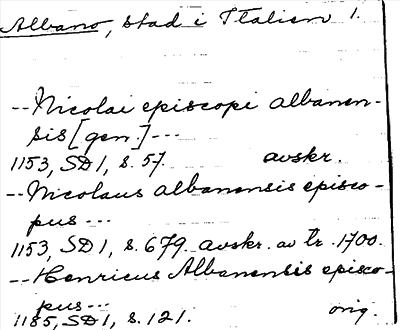 Albano, stad i Italien 1.
--Nicolai episcopi albanen-
sis [gen.]---
1153, SD 1, s. 57. avskr.
--Nicolaus albanensis episco-
pus---
1153, SD 1, s. 679. avskr. av tr. 1700.
--Henricus Albanensis episco-
pus---
1185, SD 1, s. 121. orig.